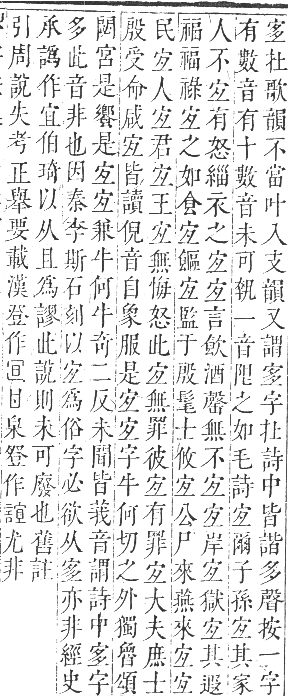 㝖在歌韻不當叶入支韻又謂㝖字在詩中皆諧多聲按一字
有數音有十數音未可執一音阻之如毛詩宐爾子孫宐其家
人不宐有怒緇衣之宐宐言飲酒罄無不宐宐岸宐獄宐其遐
福福祿宐之如食宐饇宐監于殷髦士攸宐公尸來燕來宐宐
民宐人宐君宐王宐無悔怒此宐無罪彼宐有罪宐大夫庶士
殷受命咸宐皆讀倪音自象服是宐宐字牛何切之外獨魯頌
閟宮是饗是宐宐兼牛何牛奇二反未聞皆義音謂詩中㝖字
多此音非也因泰李斯石刻以宐為俗字必欲从㝖亦非經史
承譌作宜伯琦以从且為謬此說則未可廢也舊註
引周說失考正舉要載漢登作甘泉豋作誼尤非